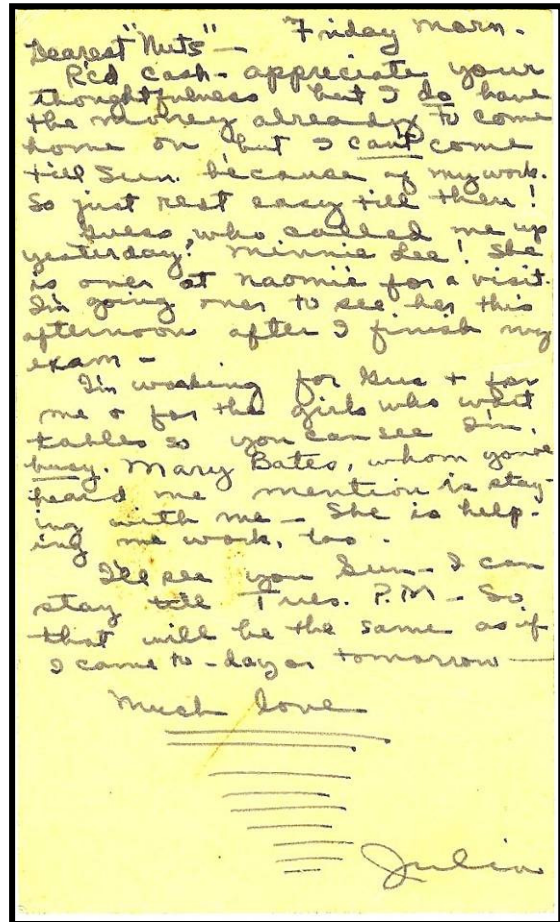 Friday Morn.
Dearest "Nuts" —
Rc'd cash - appreciate your
thoughtfulness but I do have
the money already to come
home on but I can't come
till Sun. because of my work.
So just rest easy till then!
Guess who called me up
yesterday? Minnie Lee! She
is over at Naomi's for a visit.
I'm going over to see her this
afternoon after I finish my
exam -
I'm working for Gus + for
me + for the girls who wait
tables so you can see I'm
busy. Mary Bates, whom you've
heard me mention is stay-
ing with me - She is help-
ing me work, too.
I'll see you Sun - I can
stay till Tues. P.M - So
that will be the same as if
I came to-day or tomorrow —
Much love
Julia